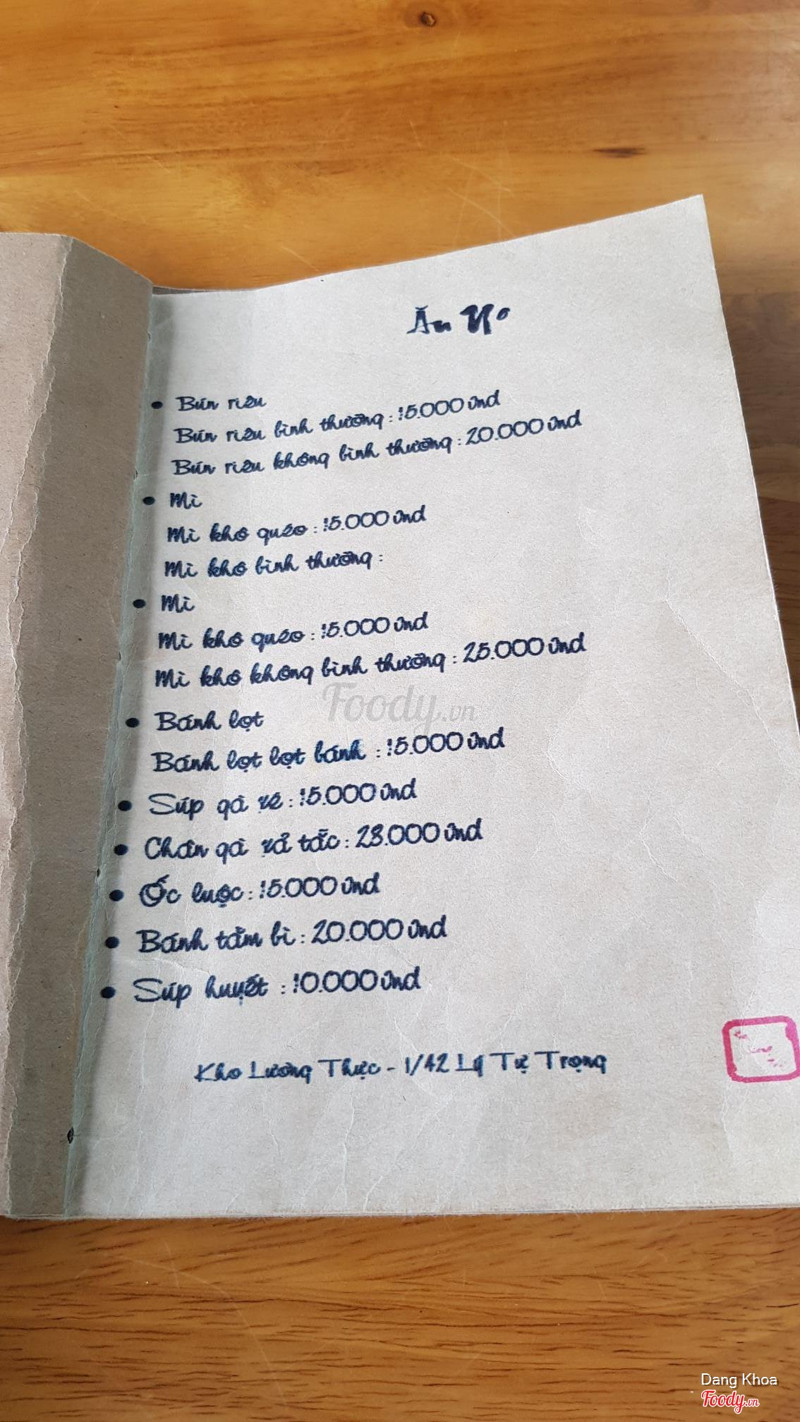 Ăn No
• Bún riêu
Bún riêu bình thường : 15.000 vnd
Bún riêu không bình thường : 20.000 vnd
• Mì
Mì khô quéo : 15.000 vnd
Mì khô bình thường :
• Mì
Mì khô quéo : 15.000 vnd
Mì khô không bình thường : 25.000 vnd
Foody.vn
• Bánh lọt
Bánh lọt lọt bánh : 15.000 vnd
• Súp gà xé : 15.000 vnd
• Chân gà xả tắc : 23.000 vnd
• Ốc luộc : 15.000 vnd
• Bánh tằm bì : 20.000 vnd
• Súp huyết : 10.000 vnd
Kho Lương Thực - 1/42 Lý Tự Trọng
Dang Khoa
Foody.vn